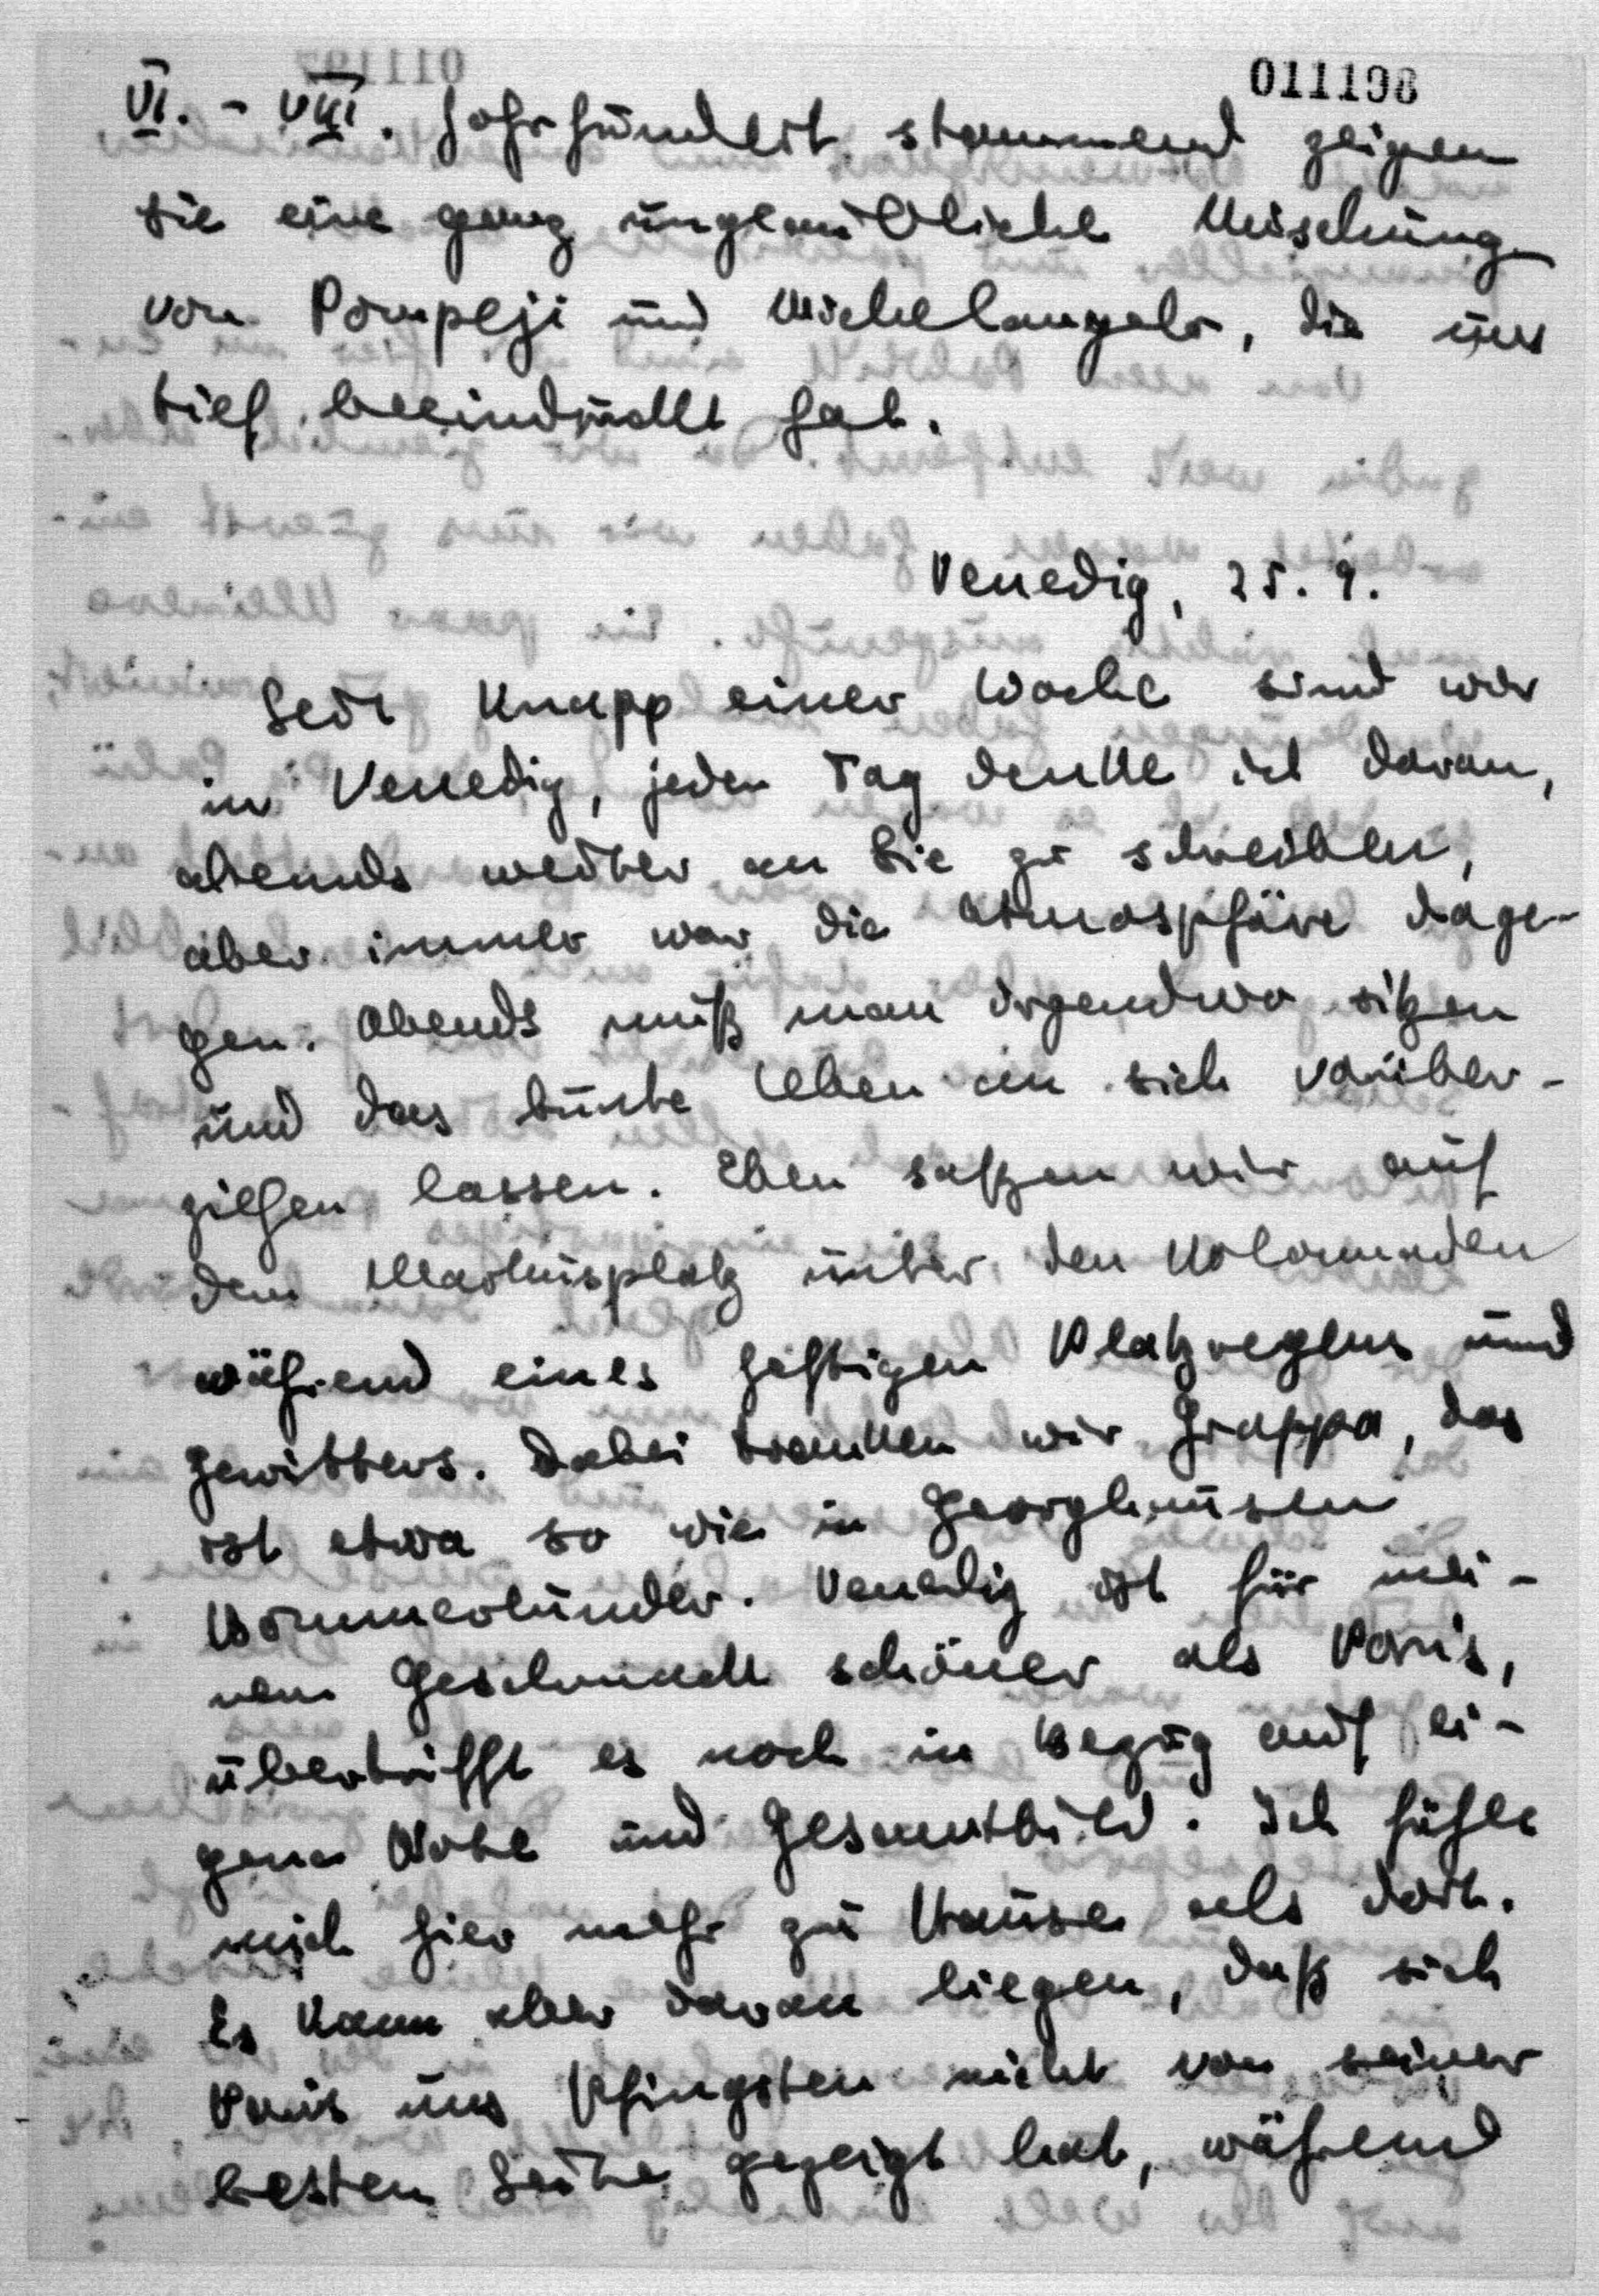 011198
VI. - VIII. Jahrhundert stammend zeigen
sie eine ganz unglaubliche Mischung
von Pompeji und Michelangelo, die uns
tief beeindruckt hat.
Venedig, 25. 9.
Seit knapp einer Woche sind wir
in Venedig, jeden Tag denke ich daran,
abends weiter an Sie zu schreiben,
aber immer war die Atmosphäre dage-
gen. Abends muß man irgendwo sitzen
und das bunte Leben an sich vorüber-
ziehen lassen. Eben saßen wir auf
dem Markusplatz unter den Kolonnaden
während eines heftigen Platzregens und
Gewitters. Dabei tranken wir Grappa, das
ist etwa so wie in Georghausen
Bommerlunder. Venedig ist für mei-
nen Geschmack schöner als Paris,
übertrifft es noch in Bezug auf ei-
gene Note und Gesamtbild. Ich fühle
mich hier mehr zu Hause als dort.
Es kann aber daran liegen, daß sich
Paris uns Pfingsten nicht von seiner
besten Seite gezeigt hat, während